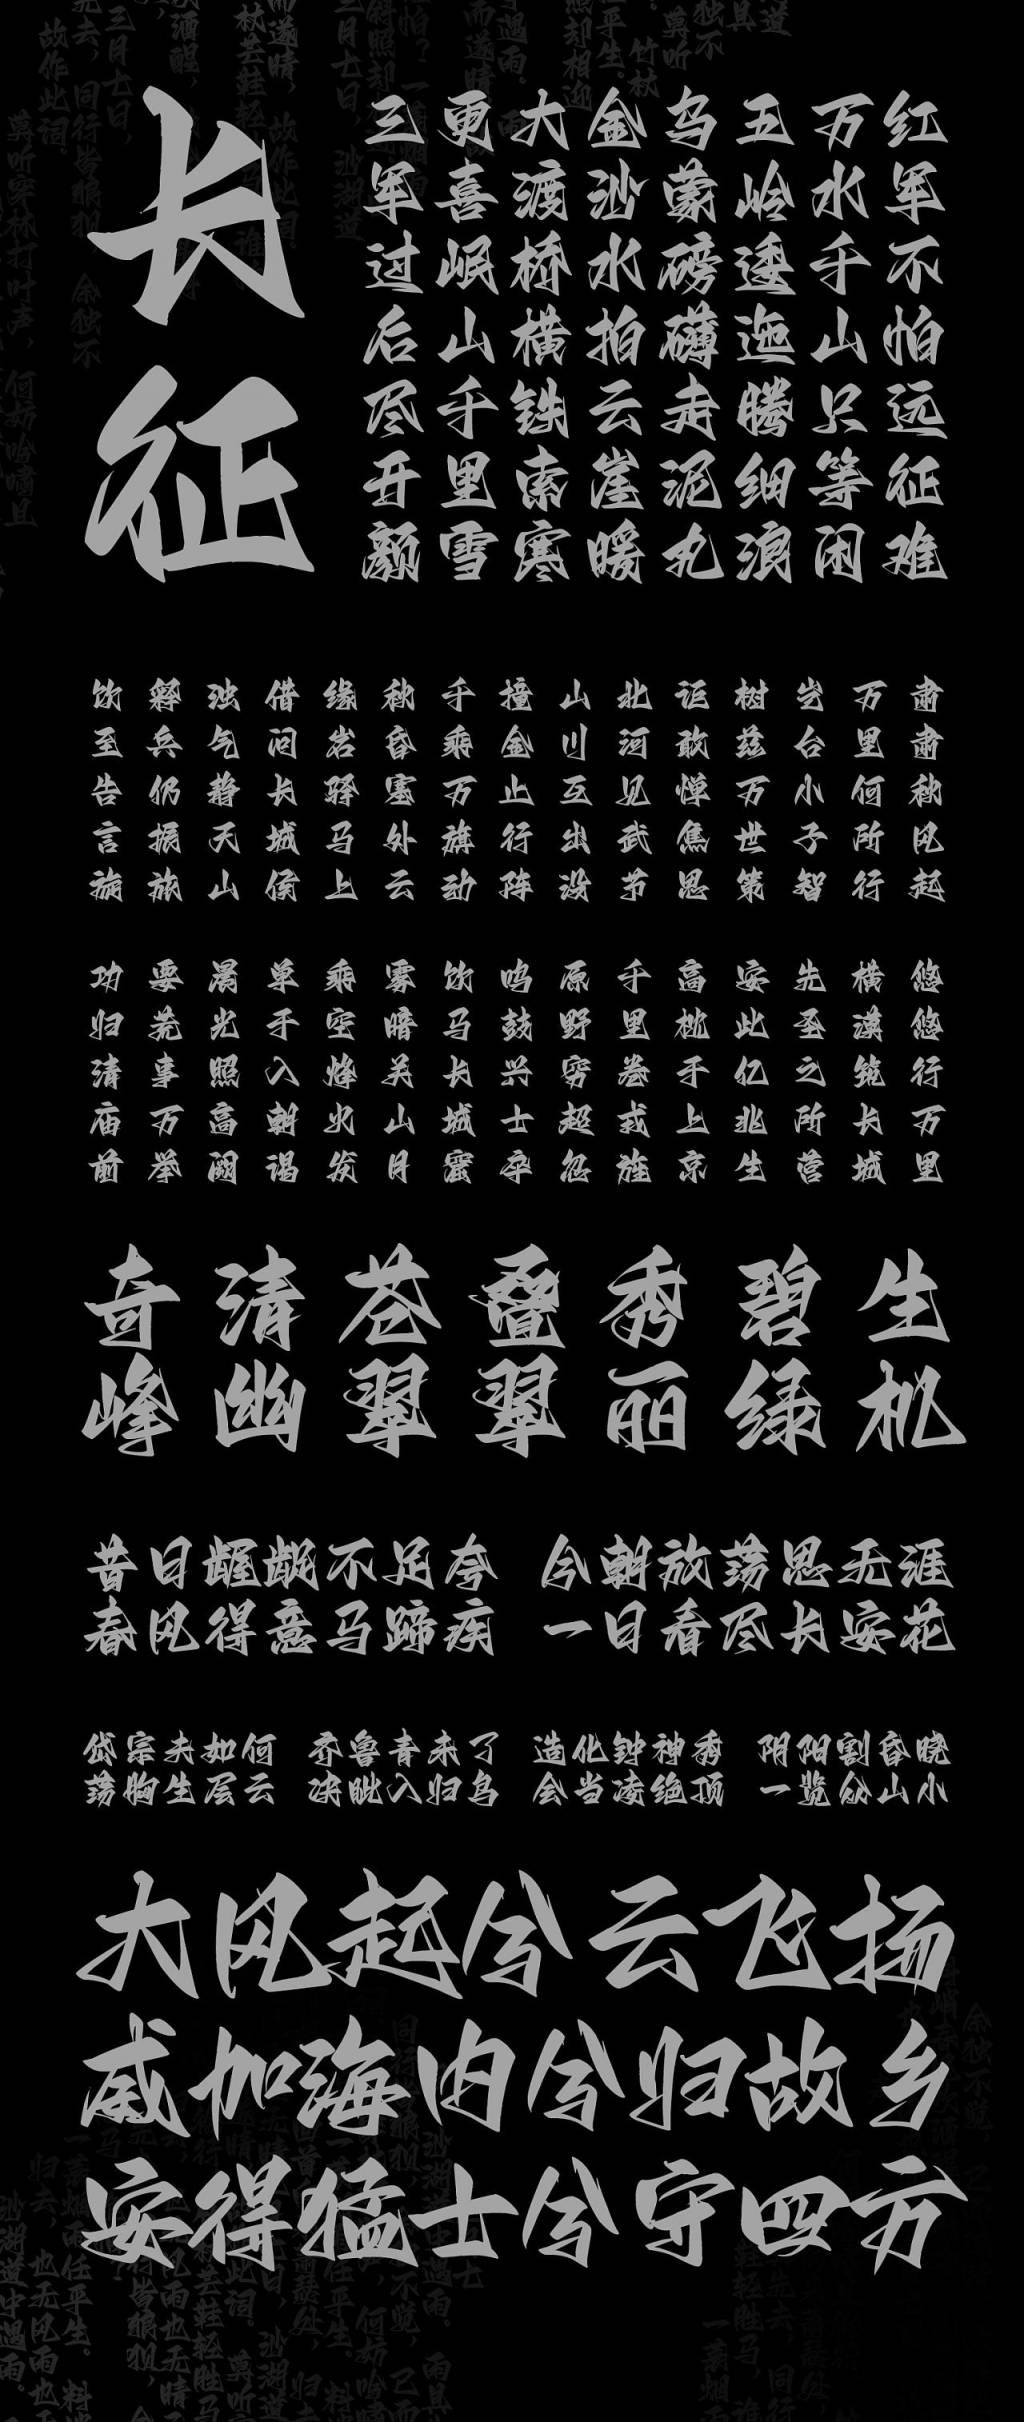 长征
红军不怕远征难
万水千山只等闲
五岭逶迤腾细浪
乌蒙磅礴走泥丸
金沙水拍云崖暖
大渡桥横铁索寒
更喜岷山千里雪
三军过后尽开颜
肃肃秋风起
万里何所行
岂台小子智
树兹万世策
讵敢惮焦思
北河见武节
山川互出没
撞金止行阵
千乘万旗动
秋昏塞外云
缘岩驿马上
借问长城候
浊气静天山
释兵仍振旅
饮至告言旋
悠悠行万里
横漠筑长城
先圣之所营
安此亿兆生
高枕于上京
千里卷戎旌
原野穷超忽
鸣鼓兴士卒
饮马长城窟
雾暗关山月
乘空烽火发
单于入朝谒
晨光照高阙
要荒事万举
功归清庙前
生机
碧绿
秀丽
叠翠
苍翠
清幽
奇峰
昔日龌龊不足夸 今朝放荡思无涯
春风得意马蹄疾 一日看尽长安花
岱宗夫如何 齐鲁青未了 造化钟神秀 阴阳割昏晓
荡胸生层云 决眦入归鸟 会当凌绝顶 一览众山小
大风起兮云飞扬
威加海内兮归故乡
安得猛士兮守四方